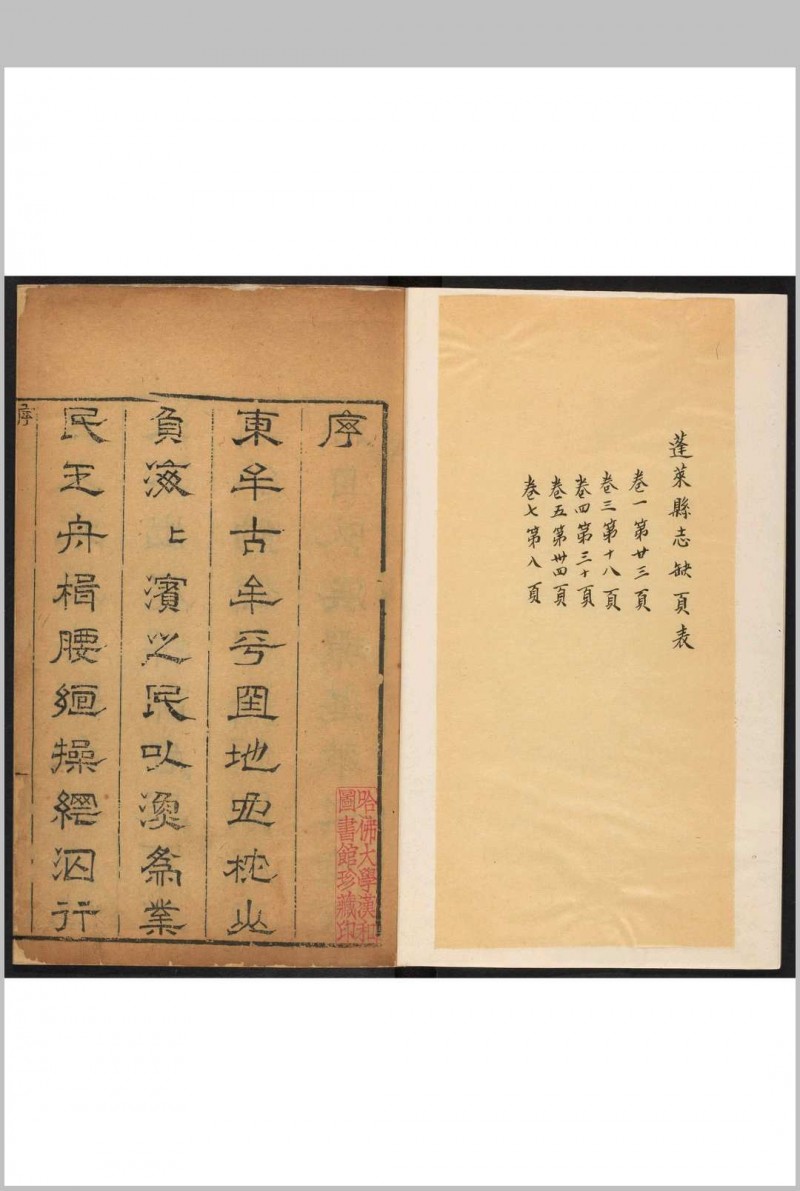 蓬萊縣志缺頁表
卷一第廿三頁
卷三第十八頁
卷四第三十頁
卷五第卅四頁
卷七第八頁
序
東牟古牟平國地也枕山
負海〻濱之民以漁爲業
民乏舟楫腰絙操網泅行
序
哈佛大學漢和
圖書館珍藏印